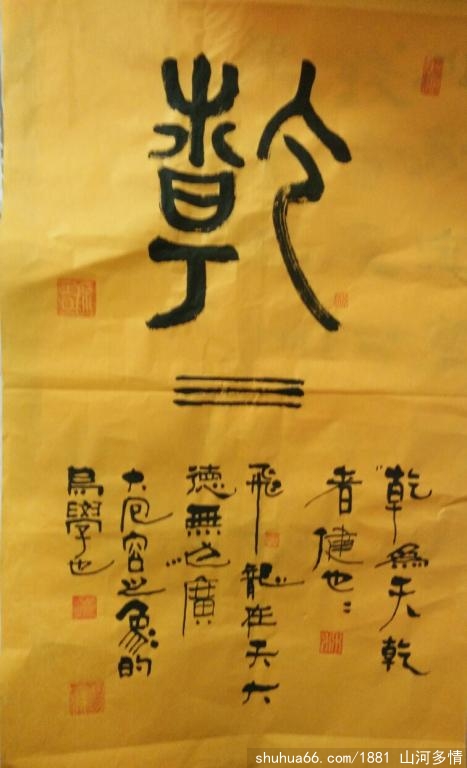 乾
乾為天乾
者健也
飛龍在天大
德無廣
大包容之象的
學也
shuhua66.com/1881 山河多情